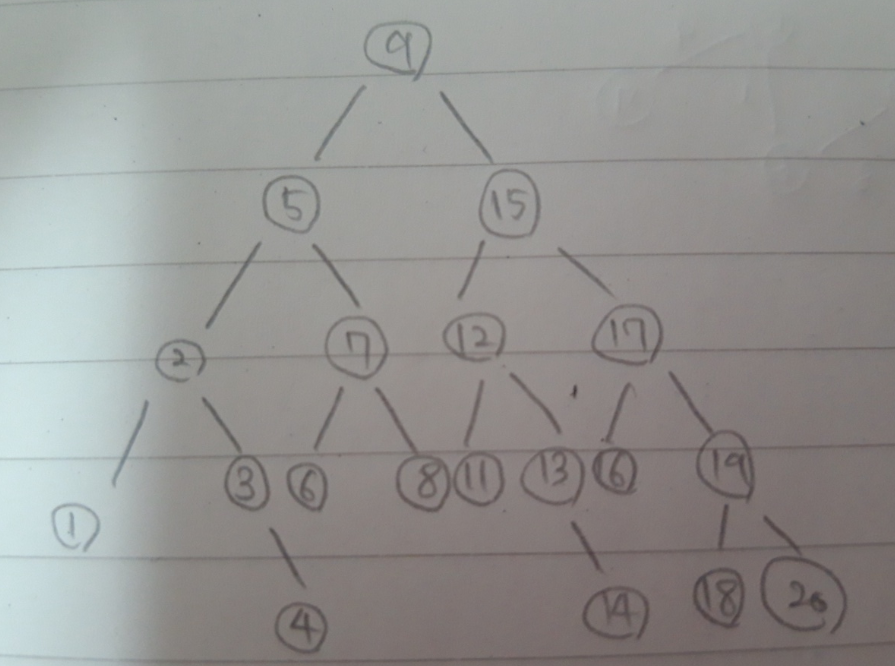 9
5 15
2 7 12 17
1 3 6 8 11 13 16 19
4 14 18 20